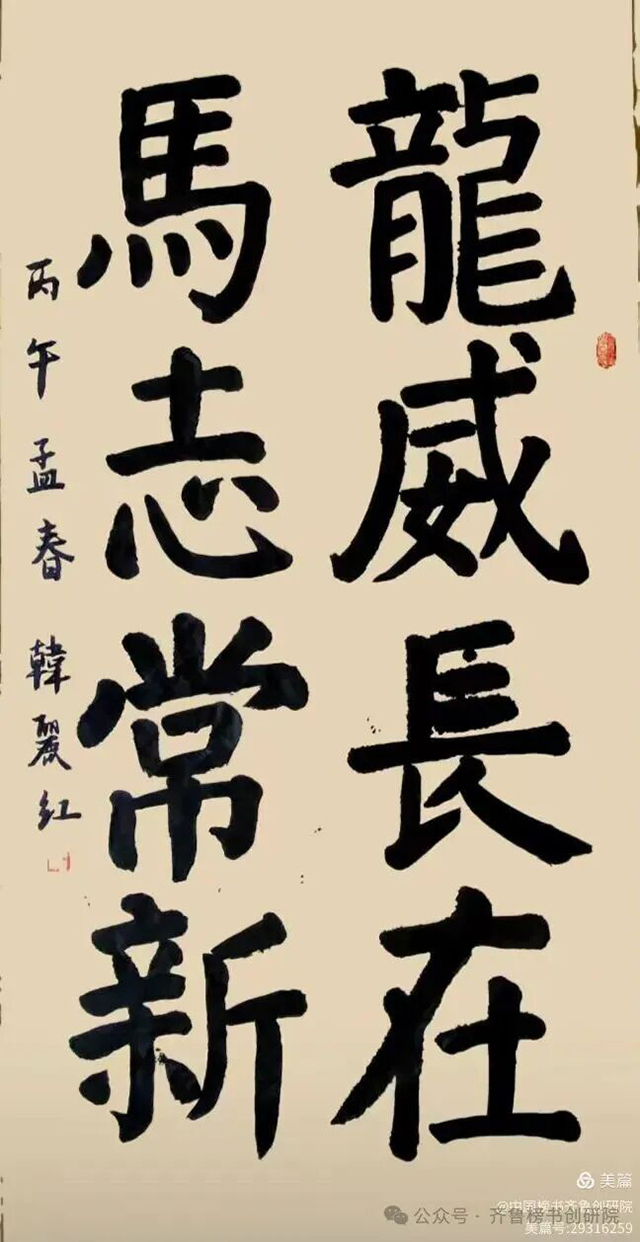 龍威長在
馬志常新
丙午孟春 韓麗红
美篇
@中国榜书齐鲁创研院
公众号·齐鲁榜书创研院
美篇号:29316259